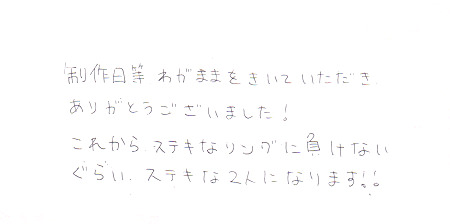 制作日等 わがままをきいていただき
ありがとうございました!
これから ステキなリングに負けない
ぐらい、ステキな2人になります!!